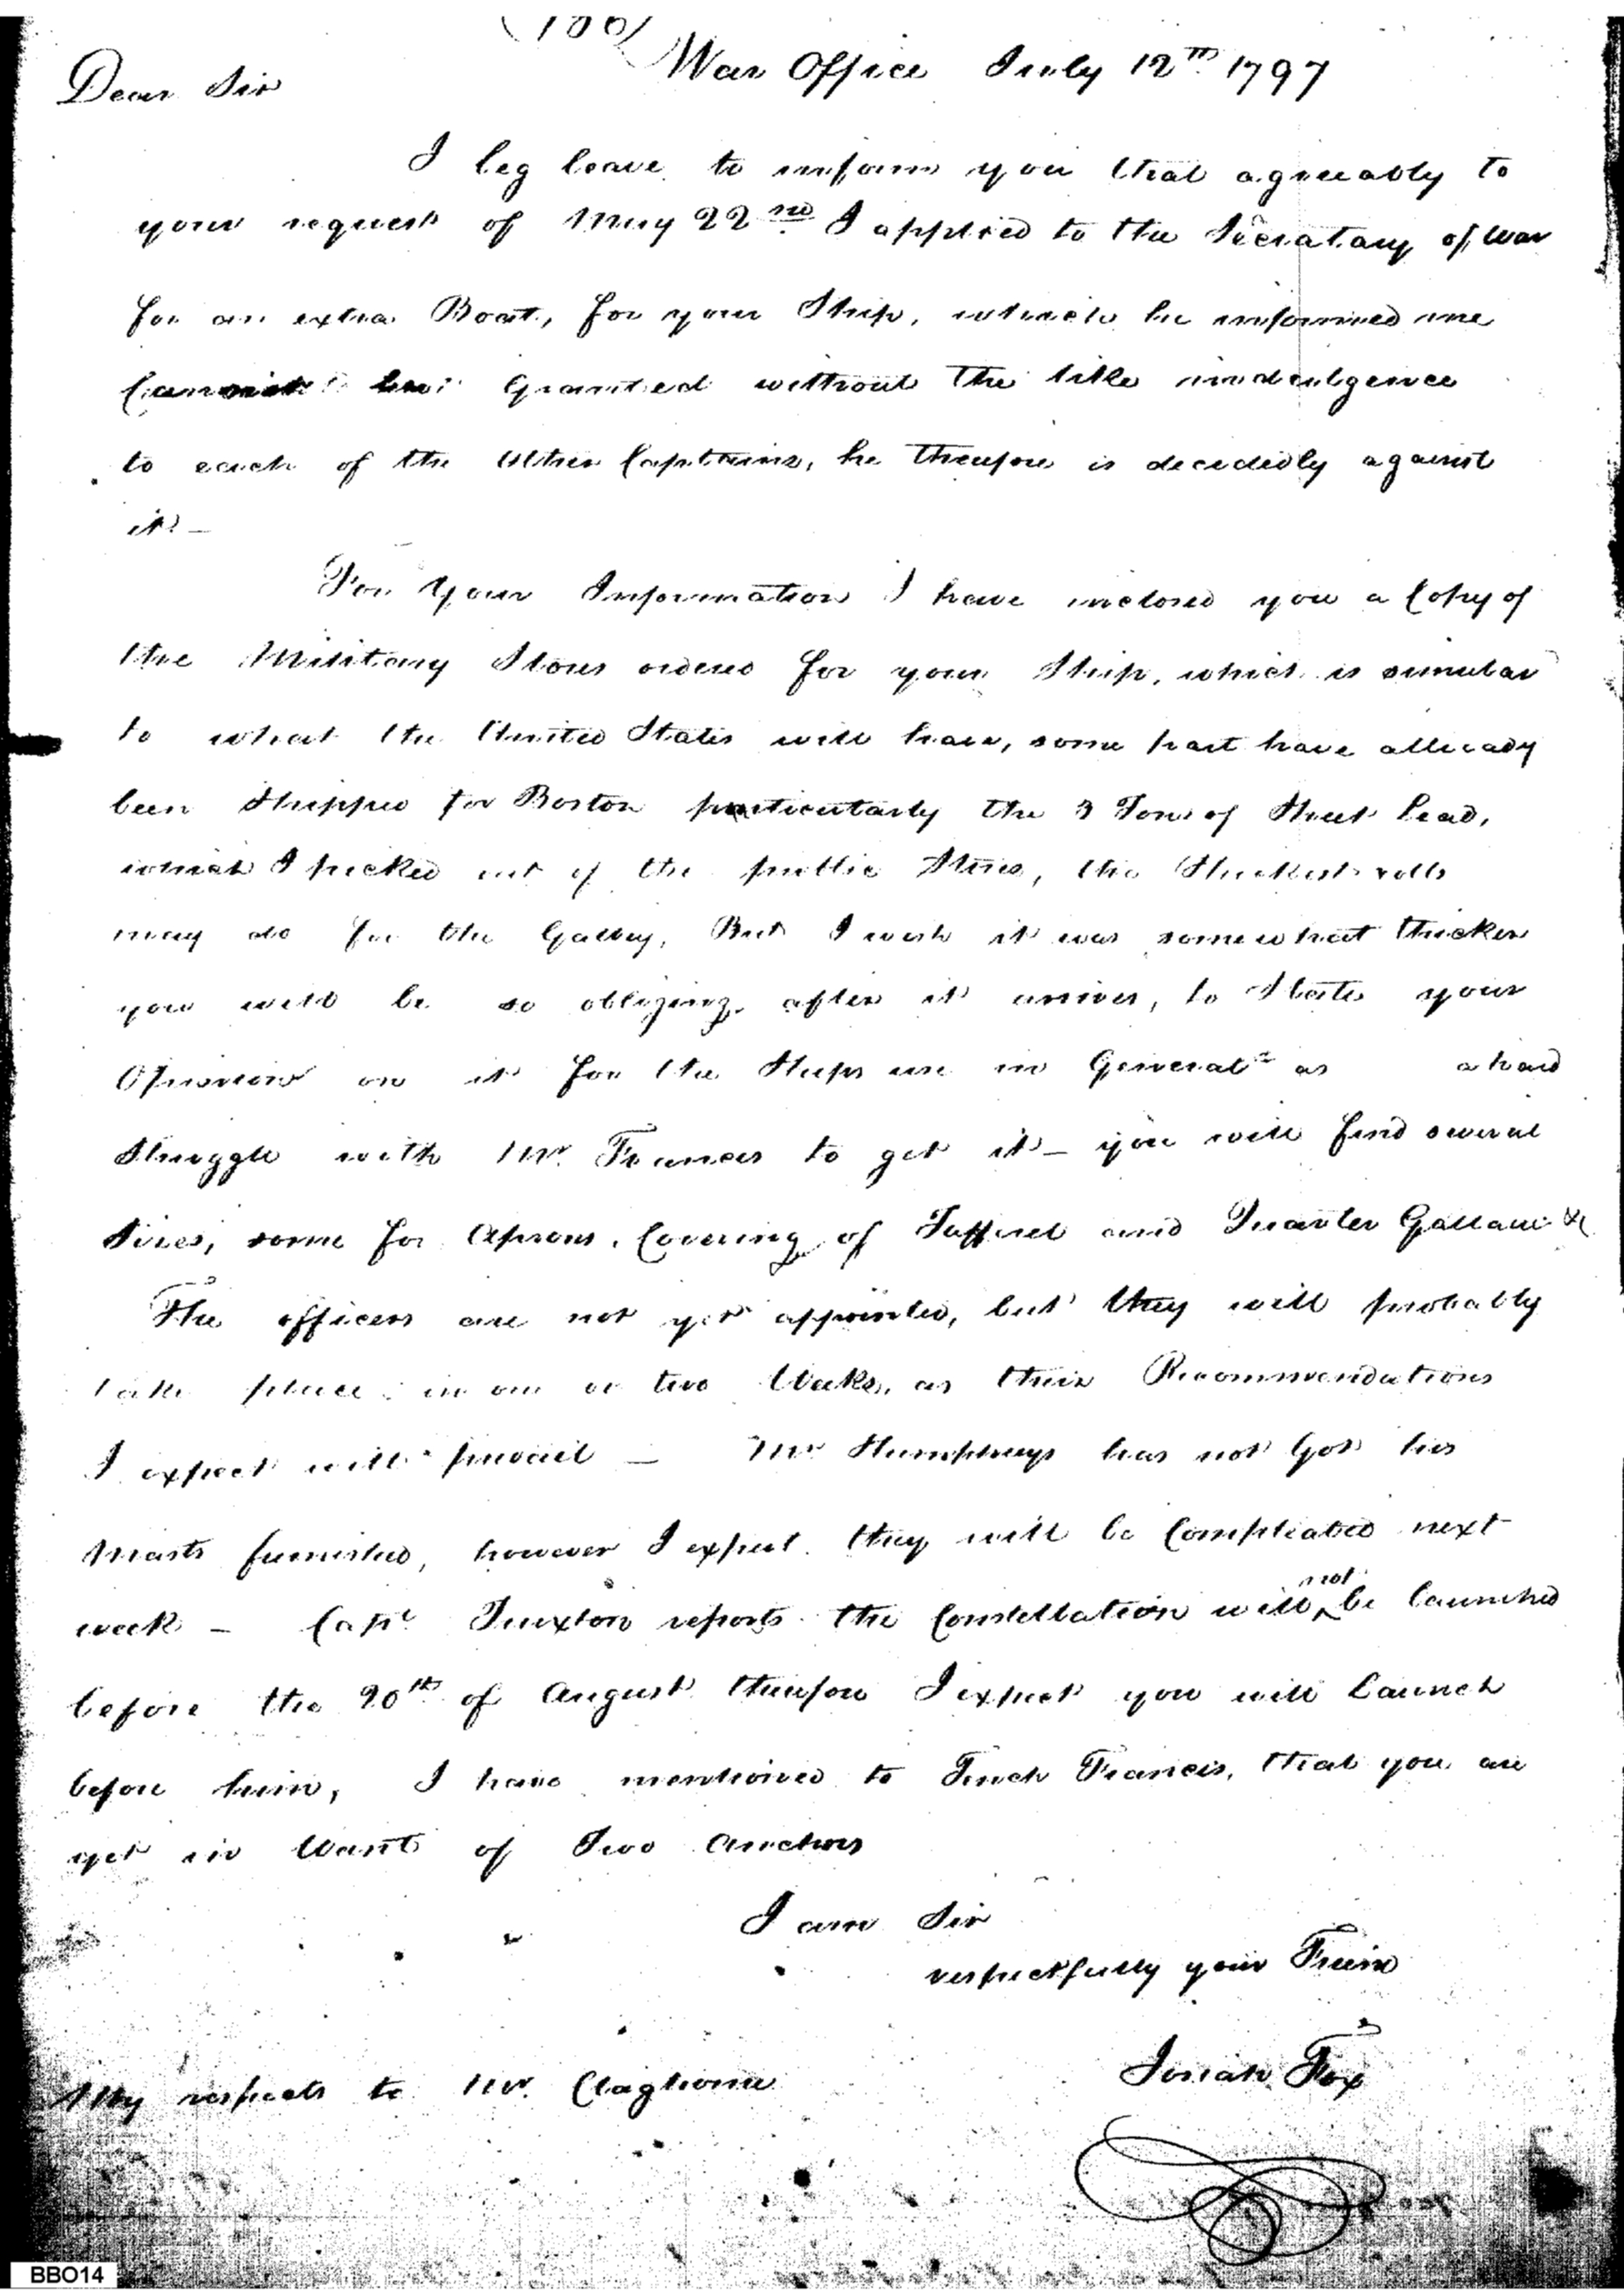 (186)
War Office July 12th 1797
Dear Sir
I beg leave to inform you that agreeably to
your request of May 22nd I applied to the Secratary of War
for an extra Boat, for your Ship, which he informed me
Cannot be Granted without the like inndulgence
to each of the Other Captains, he therefore is decidedly against
it. —
For Your Information I have inclosed you a Copy of
the Military Stores ordered for your Ship, which is similar
to what the United States will have, some part have allready
been Shipped for Boston particularly the 3 Tons of Sheet Lead,
which I picked out of the public Stores, the Thickest rolls
may do for the Galley, But I wish it was somewhat thicker
you will be so obliging after it arrives, to State your
Opinion on it for the Ships use in General as a hard
Struggle with Mr. Frances to get it — you will find several
Sizes, some for Aprons, Covering of Taffirel and Quarter &c
The officers are not yet appointed, but they will probably
take place in one or two Weeks, as their Recommendations
I expect will prevail — Mr Humphreys has not Got his
Masts furnished, however I expect they will be Compleated next
week — Capt Truxton reports the Constellation will not be launched
before the 20th of August therefore I expect you will Launch
before him, I have mentioned to Tench Francis, that you are
yet in Want of Two Anchors
I am Sir
respectfully your Friend
Josiah Fox
My respects to Mr. Claghorne
BBO14